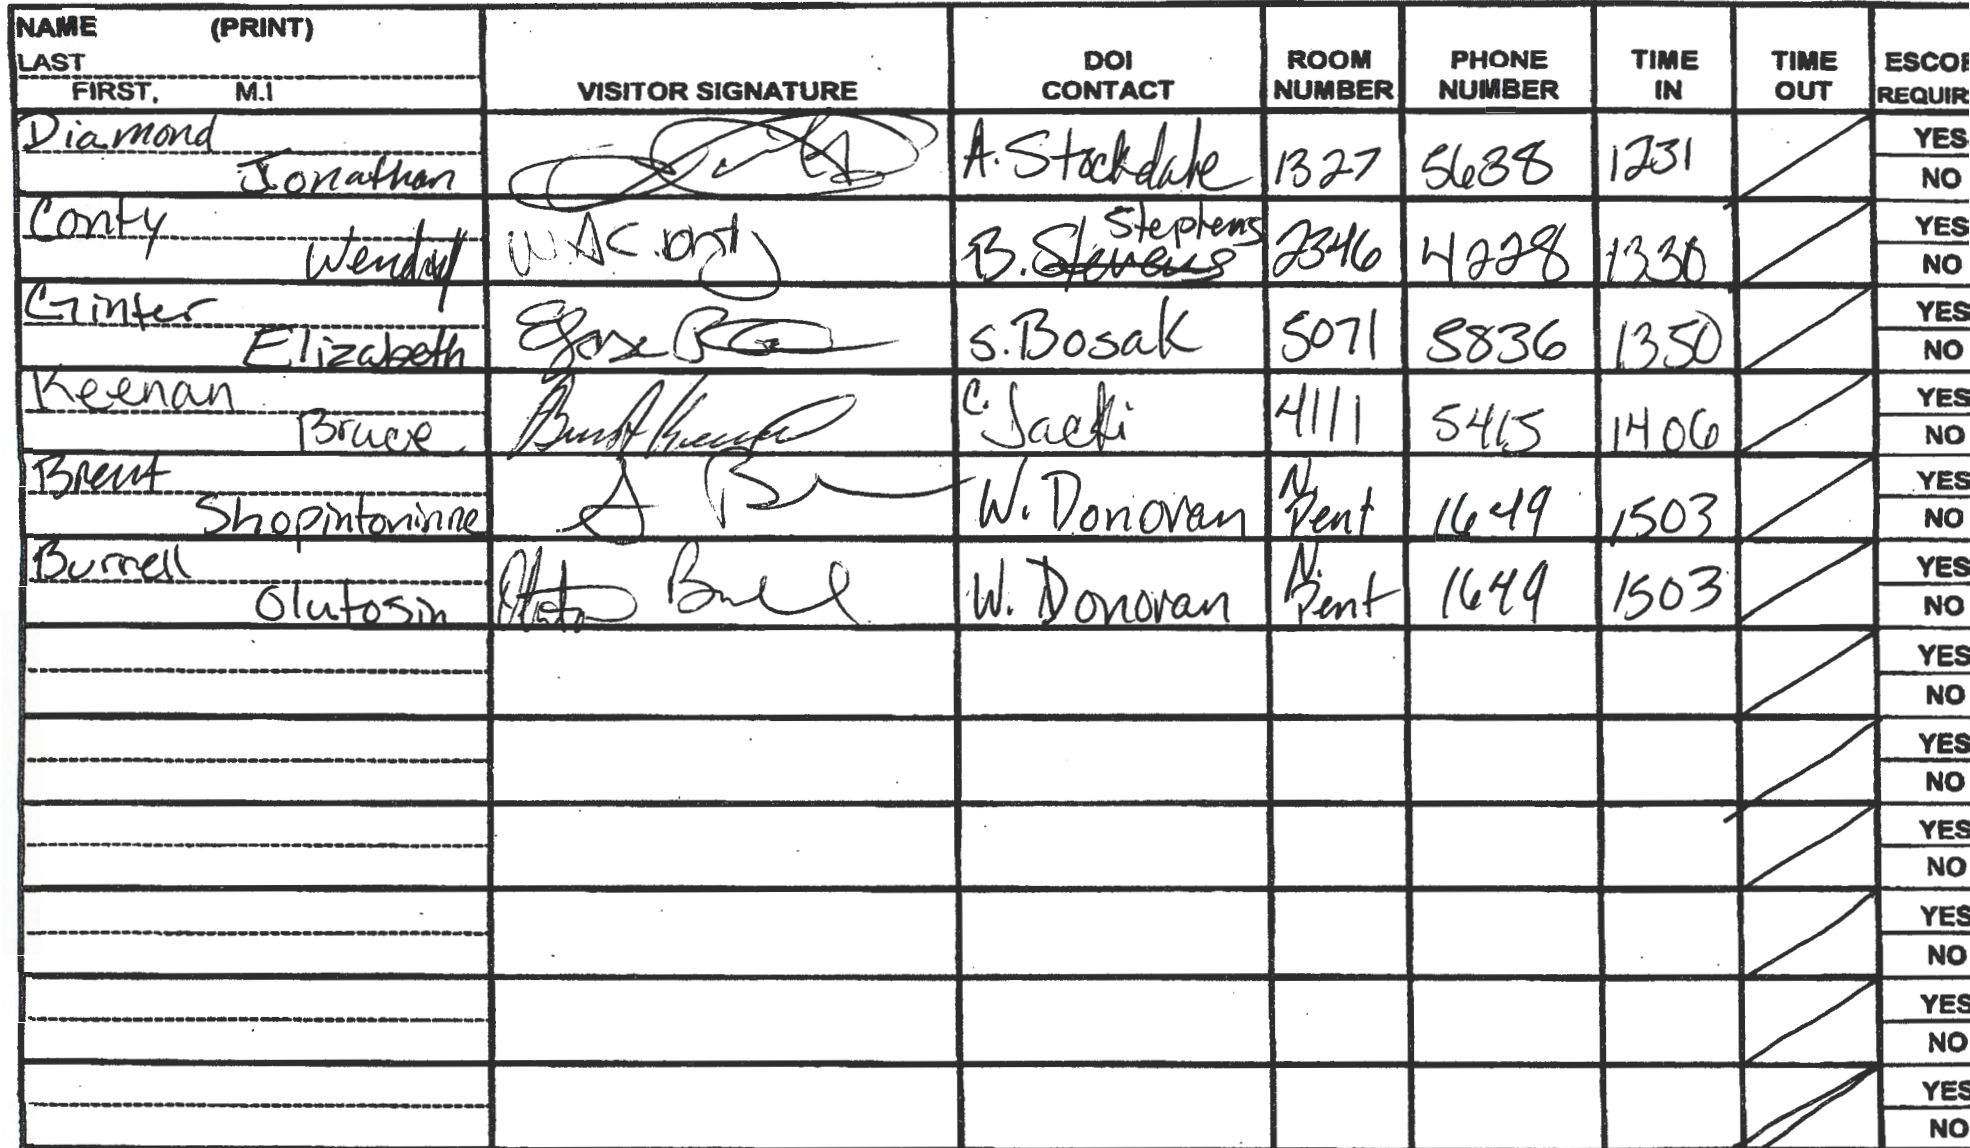 NAME (PRINT)
LAST
FIRST, M.I
VISITOR SIGNATURE
DOI CONTACT
ROOM NUMBER
PHONE NUMBER
TIME IN
TIME OUT
ESCOR
REQUIR
Diamond
Jonathan
A. Stockdale 1327 5638 1231 YES NO
Conty
W.A Conty
B. Stevens Stephens 2346 4228 1330 YES NO
Ginter
Elizabeth
S. Bosak 5071 5836 1350 YES NO
Keenan
Bruce
C. Jacki 4111 5415 1406 YES NO
Brent
W. Donovan N. Pent 1649 1503 YES NO
Burrell
Olutosin
W. Donovan N. Pent 1649 1503 YES NO
YES
NO
YES
NO
YES
NO
YES
NO
YES
NO
YES
NO